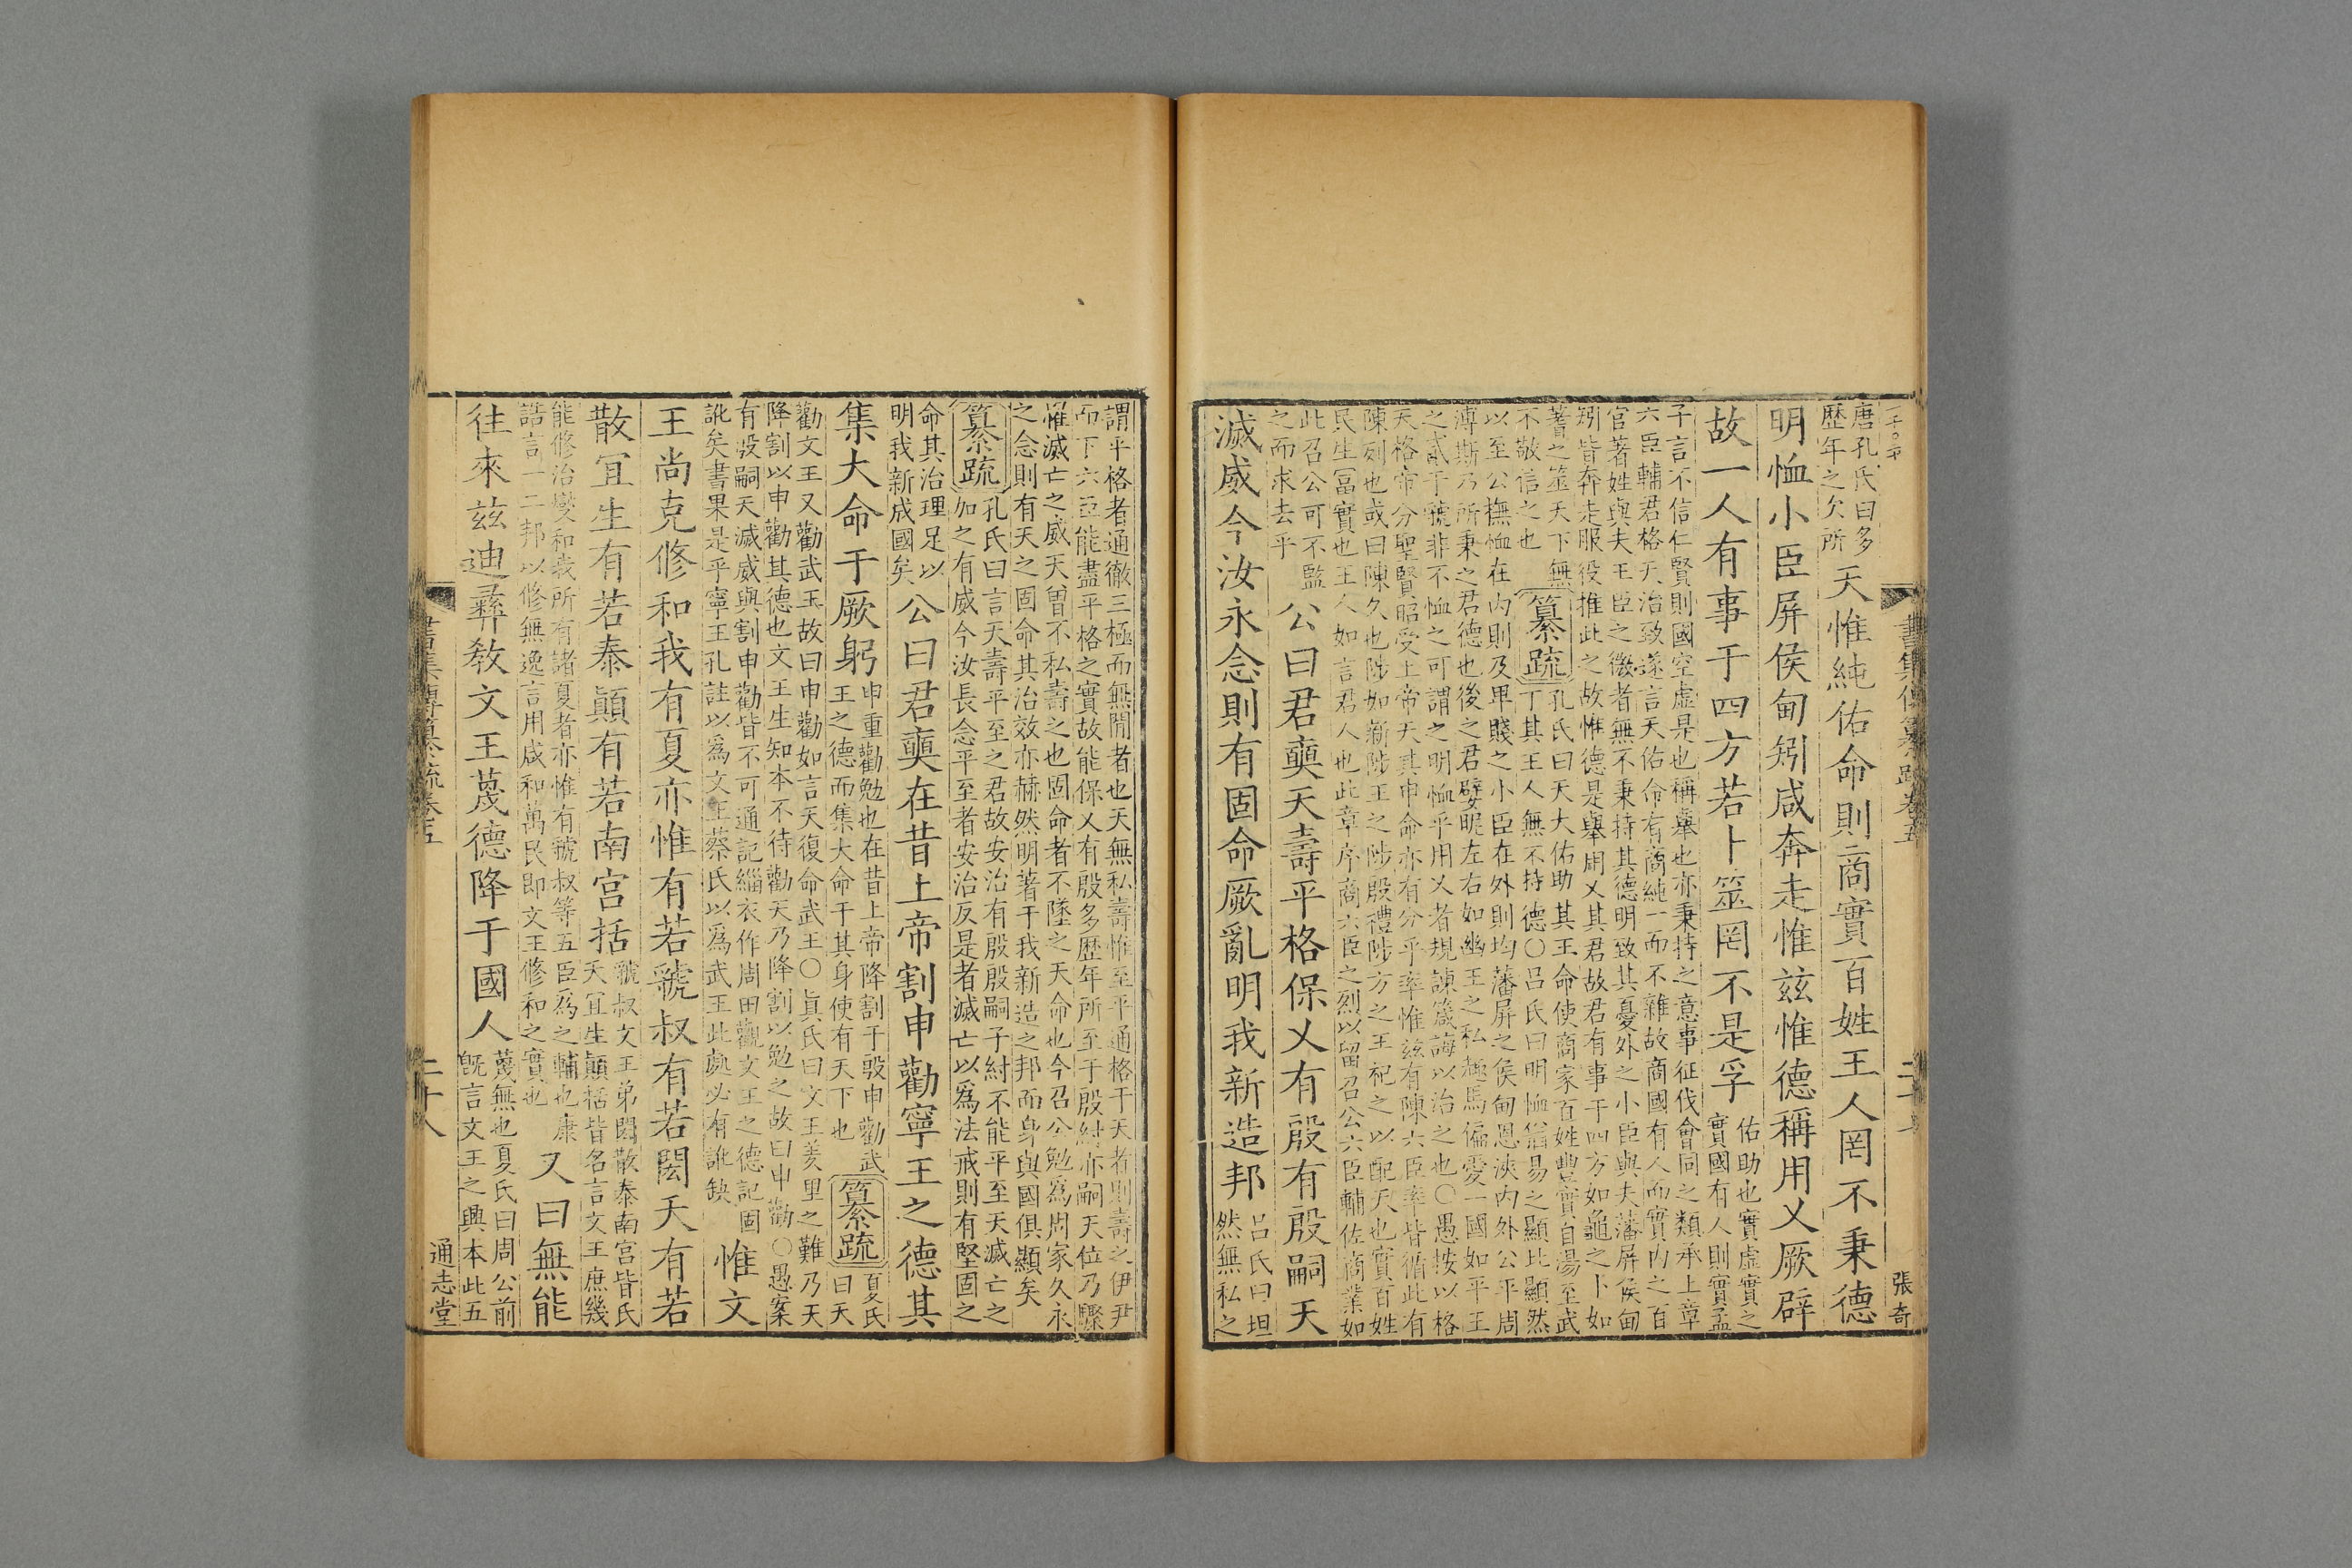 書集傳纂疏卷五
張奇
唐孔氏曰多
歷年之久所
天惟純佑命則商實百姓王人罔不秉德
明恤小臣屏侯甸矧咸奔走惟兹惟德稱用乂厥辟
故一人有事于四方若卜筮罔不是孚
佑助也實虛實之
實國有人則實孟
子言不信仁賢則國空虛是也稱舉也亦秉持之意事征伐會同之類承上章
六臣輔君格天治致遂言天佑命有商純一而不雜故商國有人而實內之百
官著姓與夫王臣之微者無不秉持其德明致其憂外之小臣與夫藩屏侯甸
矧皆奔走服役推此之故惟德是舉用乂其君故君有事于四方如龜之卜如
蓍之筮天下無
不敬信之也
纂疏
孔氏曰天大佑助其王命使商家百姓豐實自湯至武
丁其王人無不持德〇呂氏曰明恤猶易之顯比顯然
以至公撫恤在內則及卑賤之小臣在外則均藩屏之侯甸恩浹內外公平周
溥斯乃所秉之君德也後之君嬖昵左右如幽王之私趣馬偏愛一國如平王
之貳于虢非不恤之可謂之明恤乎用乂者規諫箴誨以治之也〇愚按以格
天格帝分聖賢昭受上帝天其申命亦有分乎率惟兹有陳六臣率皆循此有
陳列也或曰陳久也陟如新陟王之陟殷禮陟方之王祀之以配天也實百姓
民生富實也王人如言君人也此章序商六臣之烈以留召公六臣輔佐商業如
此召公可不監
之而求去乎
公曰君奭天壽平格保乂有殷有殷嗣天
滅威今汝永念則有固命厥亂明我新造邦
呂氏曰坦
然無私之
謂平格者通徹三極而無閒者也天無私壽惟至平通格于天者則壽之伊尹
而下六臣能盡平格之實故能保乂有殷多歷年所至于殷紂亦嗣天位乃驟
罹滅亡之威天曾不私壽之也固命者不墜之天命也今召公勉爲周家久永
之念則有天之固命其治效亦赫然明著于我新造之邦而身與國俱顯矣
纂疏
孔氏曰言天壽平至之君故安治有殷殷嗣子紂不能平至天滅亡之
加之有威今汝長念平至者安治反是者滅亡以爲法戒則有堅固之
命其治理足以
明我新成國矣
公曰君奭在昔上帝割申勸寧王之德其
集大命于厥躬
申重勸勉也在昔上帝降割于殷申勸武
王之德而集大命于其身使有天下也
纂疏
夏氏
曰天
勸文王又勸武王故曰申勸如言天復命武王〇眞氏曰文王羑里之難乃天
降割以申勸其德也文王生知本不待勸天乃降割以勉之故曰申勸〇愚案
有殷嗣天滅威與割申勸皆不可通記緇衣作周田觀文王之德記固
訛矣書果是乎寧王孔註以爲文王蔡氏以爲武王此處必有訛缺
惟文
王尚克修和我有夏亦惟有若虢叔有若閎夭有若
散宜生有若泰顚有若南宮括
虢叔文王弟閎散泰南宮皆氏
夭宜生顚括皆名言文王庶幾
能修治燮和我所有諸夏者亦惟有虢叔等五臣爲之輔也康
誥言一二邦以修無逸言用咸和萬民即文王修和之實也
又曰無能
往來兹迪彝敎文王蔑德降于國人
蔑無也夏氏曰周公前
旣言文王之興本此五
書集傳纂疏卷五
二十八
通志堂